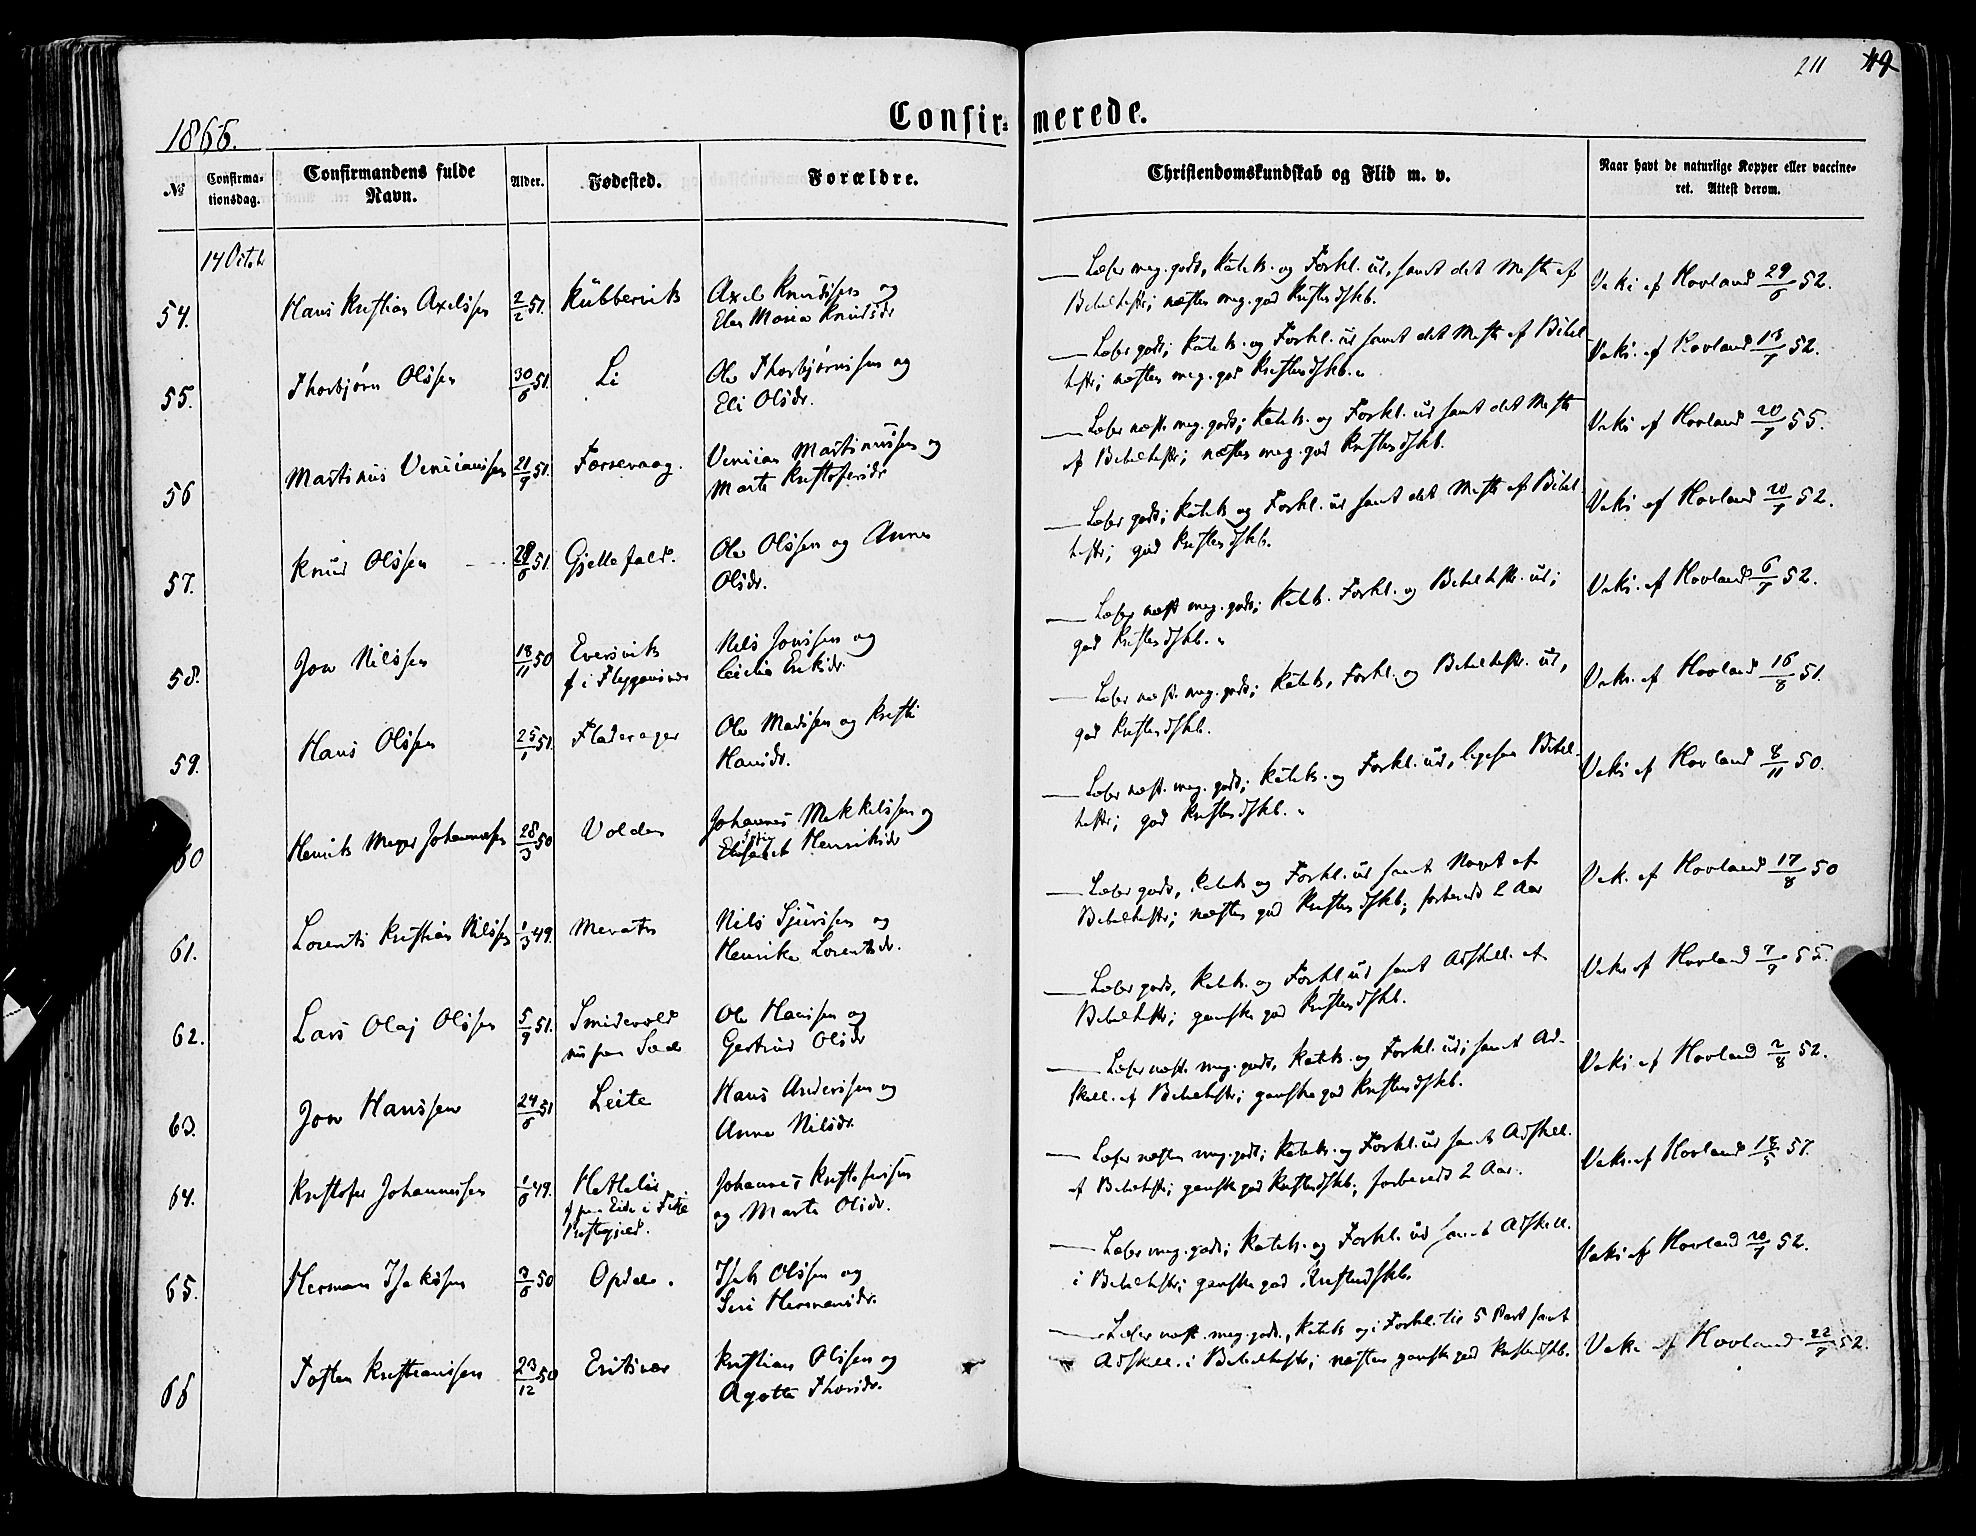 211
Confir= merede.
1866.
№
Confirma-
tionsdag.
Confirmandens fulde
Navn.
Alder.
Fødested.
Forældre.
Christendomskundskab og Flid m. v.
Naar havt de naturlige Kopper eller vaccine-
ret. Attest derom.
14 Octob
54. Hans Kristian Axelssen 2/2 51. Kubbervik Axel Knudssen og
Elen Maria Knudsdr
Læser meg. godt, Katek. og Forkl. ud, samt det Meste af
Bibelhistr; næsten meg. god Kristendskb.
Vaks af Hovland 29/6 52.
55. Thorbjørn Olssen 30/6 51. Li Ole Thorbjørnssen og
Eli Olsdr.
Læser godt; Katek. og Forkl. ud samt det Meste af Bibel
histr; næsten meg. god Kristendskb.
Vaks. af Hovland 13/7 52.
56 Martinus Veniianssen 21/9 51. Forsevaag. Veniian Martinussen og
Marta Kristofersdr
Læser næst. meg. godt; Katek. og Forkl. ud samt det Meste
af Bibelhistr; næsten meg. god Kristendskb.
Vaks af Hovland 20/7 55.
57. Knud Olssen 29/6 51. Gjellefald. Ole Olssen og Anna
Olsdr.
Læser godt; Katek. og Forkl. ud samt det Meste af Bibel
histr; god Kristendskb.
Vaks af Hovland 20/7 52.
58. Jon Nilssen 18/11 50 Eversvik
f i Flyggansvær
Nils Jonssen og
Cicilia Eriksdr.
Læser næst meg. godt; Katek. Forkl. og Bibelhistr. ud;
god Kristendskb.
Vaks. af Hovland 6/7 52.
59. Hans Olssen 25/1 51. Fladerager Ole Madssen og Kristi
Hansdr.
Læser næst. meg. godt; Katek, Forkl. og Bibelhistr. ud,
god Kristendskb.
Vaks. af Hovland 16/8 51.
60 Henrik Meyer Johannessen 28/3 50 Volden Johannes Mekkelssen og
Elisabet Henriksdr
Læser næst. meg. godt; Katek. og Forkl. ud, ligesaa Bibel.
histr; god Kristendskb.
Vaks af Hovland 8/11 50.
61. Lorents Kristian Nilssen 1/3 49. Nils Sjurssen og
Henrika Lorentsdr.
Læser godt, Katek og Forkl. ud samt Noget af
Bibelhistr; næsten god Kristendskb; forberedt 2 Aar
Vak. af Hovland 17/8 50
62. Lars Olaj Olssen 5/9 51. Smidevold
Ole Hanssen og
Gertrud Olsdr
Læser godt, Katek. og Forkl. ud samt Adskill. af
Bibelhistr; ganske god Kristendskb.
Vaks af Hovland 7/9 55.
63. Jon Hanssen 24/6 51 Leite Hans Anderssen og
Anna Nilsdr.
Læser næst. meg. godt, Katek. og Forkl. ud; samt Ad-
skill. af Bibelhistr; ganske god Kristendskb.
Vaks af Hovland 2/8 52.
64. Kristofer Johannessen 1/6 49. Hetlelia
f paa Eide i Fitje
Prestegjeld.
Johannes Kristoferssen
og Marta Olsdr.
Læser næsten meg. godt; Katek. og Forkl. ud samt Adskill.
af Bibelhistr; ganske god Kristendskb; forberedt 2 Aar.
Vaks. af Hovland 18/5 57.
65. Herman Isakssen 3/6 50 Opdal. Isak Olssen og
Siri Hermansdr.
Læser meg. godt; Katek. og Forkl. ud samt Adskill.
i Bibelhistr; ganske god Kristendskb.
Vaks af Hovland 20/7 52.
66 Tosten Kristianssen 23/12 50 Kristian Olssen og
Agatta Thorsdr.
Læser næst. meg. godt, Katek og i Forkl. til 5 Part samt
Adskill. i Bibelhistr; næsten ganske god Kristendskb.
Vaks af Hovland 22/7 52.